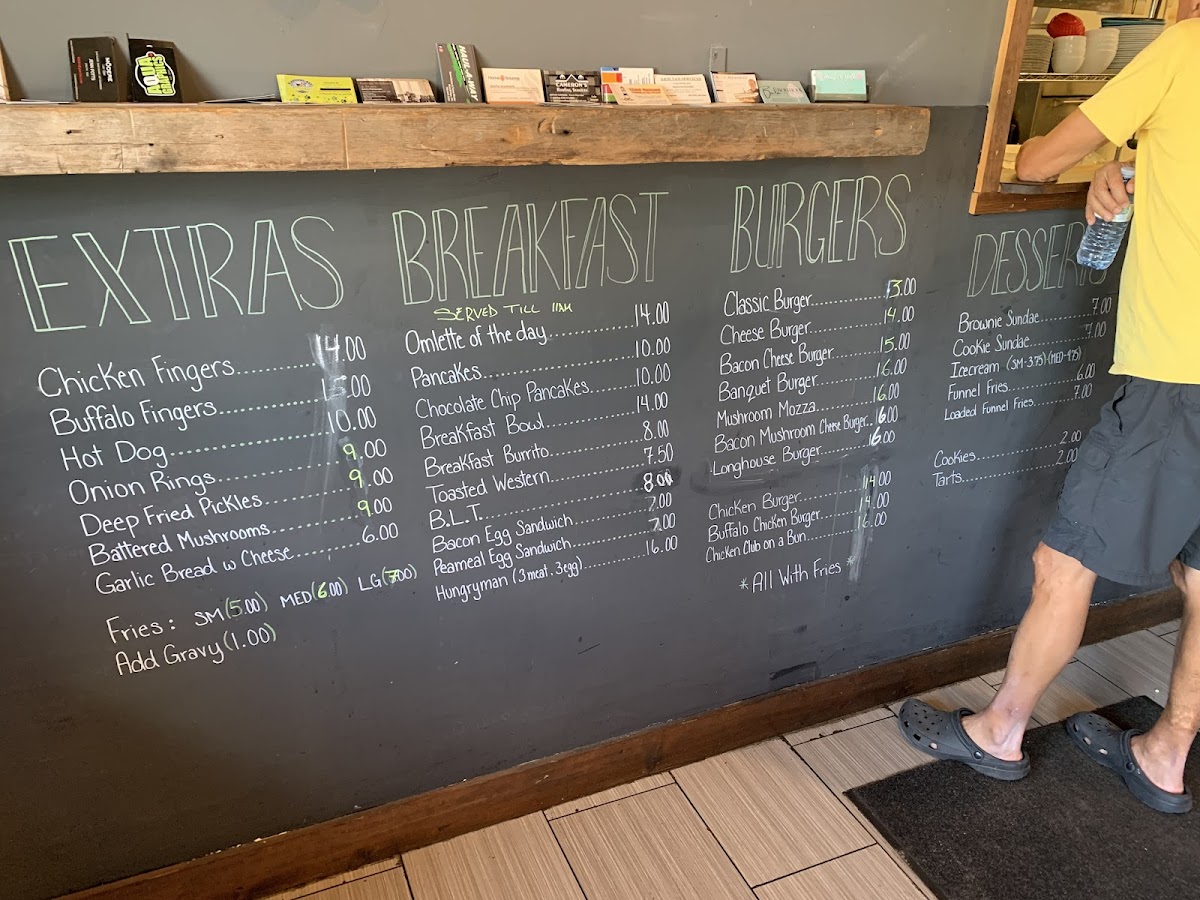 AQUA
GRAPHICS
CAMERON'S
EXTRAS
Chicken Fingers 14.00
Buffalo Fingers 15.00
Hot Dog 10.00
Onion Rings 9.00
Deep Fried Pickles 9.00
Battered Mushrooms 9.00
Garlic Bread w Cheese 6.00
Fries: SM(5.00) MED(6.00) LG(7.00)
Add Gravy(1.00)
BREAKFAST
SERVED TILL 11AM
Omlette of the day 14.00
Pancakes 10.00
Chocolate Chip Pancakes 10.00
Breakfast Bowl 14.00
Breakfast Burrito 8.00
Toasted Western 7.50
B.L.T. 8.00
Bacon Egg Sandwich 7.00
Peameal Egg Sandwich 7.00
Hungryman (3 meat, 3 egg) 16.00
BURGERS
Classic Burger 13.00
Cheese Burger 14.00
Bacon Cheese Burger 15.00
Banquet Burger 16.00
Mushroom Mozza 16.00
Bacon Mushroom Cheese Burger 16.00
Longhouse Burger 16.00
Chicken Burger 14.00
Buffalo Chicken Burger 14.00
Chicken Club on a Bun 16.00
*All With Fries*
DESSERTS
Brownie Sundae 7.00
Cookie Sundae 7.00
Icecream (SM-3.75)(MED-4.75)
Funnel Fries 6.00
Loaded Funnel Fries 7.00
Cookies 2.00
Tarts 2.00